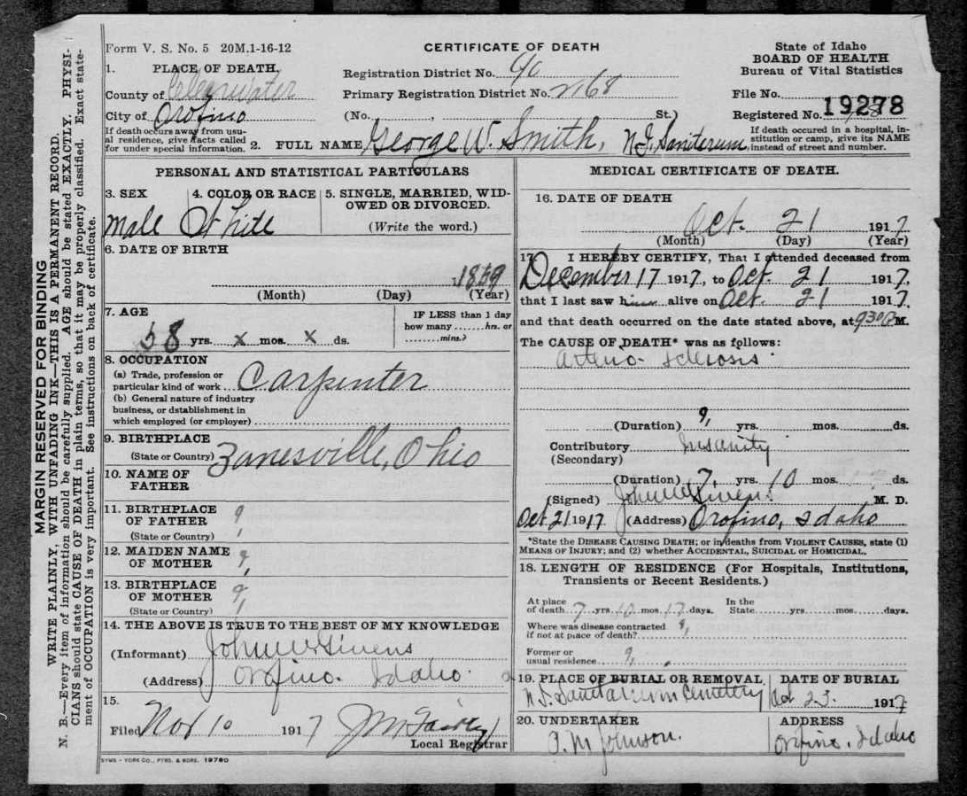 Form V. S. No. 5 20M.1-16-12
CERTIFICATE OF DEATH
State of Idaho
BOARD OF HEALTH
Bureau of Vital Statistics
1. PLACE OF DEATH.
County of Clearwater
City of Orofino
If death occurs away from usual residence, give facts called for under special information.
Registration District No. 90
Primary Registration District No. 2168
(No. , St.)
File No.
Registered No. 19278
If death occured in a hospital, institution or camp, give its NAME instead of street and number.
2. FULL NAME George W. Smith, N.I. Saniterum
PERSONAL AND STATISTICAL PARTICULARS
3. SEX
male
4. COLOR OR RACE
White
5. SINGLE, MARRIED, WIDOWED OR DIVORCED.
(Write the word.)
6. DATE OF BIRTH
1859
(Month) (Day) (Year)
7. AGE
58 yrs. x mos. x ds.
IF LESS than 1 day
how many ...... hrs. or
......... mins.?
8. OCCUPATION
(a) Trade, profession or
particular kind of work Carpinter
(b) General nature of industry
business, or dstablishment in
which employed (or employer)
9. BIRTHPLACE
(State or Country) Zanesville, Ohio
10. NAME OF
FATHER
11. BIRTHPLACE
OF FATHER ?
(State or Country)
12. MAIDEN NAME
OF MOTHER ?
13. BIRTHPLACE
OF MOTHER ?
(State or Country)
14. THE ABOVE IS TRUE TO THE BEST OF MY KNOWLEDGE
(Informant) John W Givens
(Address) Orofino. Idaho.
15.
Filed Nov 10 1917
Local Registrar
SYMS - YORK CO., PTRS. & BDRS. 19780
MEDICAL CERTIFICATE OF DEATH.
16. DATE OF DEATH
Oct. 21 1917
(Month) (Day) (Year)
17. I HEREBY CERTIFY, That I attended deceased from
December 17 1917, to Oct. 21 1917,
that I last saw him alive on Oct. 21 1917.
and that death occurred on the date stated above, at 930 P M.
The CAUSE OF DEATH* was as follows:
Arterio- sclerosis.
(Duration) ? yrs. mos. ds.
Contributory Insanity
(Secondary)
(Duration) 7 yrs. 10 mos. ds.
(Signed) John W Givens. M. D.
Oct 21 1917 (Address) Orofino, Idaho
*State the DISEASE CAUSING DEATH; or in deaths from VIOLENT CAUSES, state (1)
MEANS OF INJURY; and (2) whether ACCIDENTAL, SUICIDAL or HOMICIDAL.
18. LENGTH OF RESIDENCE (For Hospitals, Institutions,
Transients or Recent Residents.)
At place
of death 7 yrs. 10 mos. 17 days.
In the
State yrs. mos. days.
Where was disease contracted
if not at place of death? ?
Former or
usual residence ?
19. PLACE OF BURIAL OR REMOVAL
N.I. Sanitarium Cemetery
DATE OF BURIAL
Oct 23. 1917
20. UNDERTAKER
A. M Johnson.
ADDRESS
Orofino. Idaho
MARGIN RESERVED FOR BINDING
WRITE PLAINLY, WITH UNFADING INK—THIS IS A PERMANENT RECORD.
N. B.—Every item of information should be carefully supplied. AGE should be stated EXACTLY. PHYSI-
CIANS should state CAUSE OF DEATH in plain terms, so that it may be properly classified. Exact state-
ment of OCCUPATION is very important. See instructions on back of certificate.